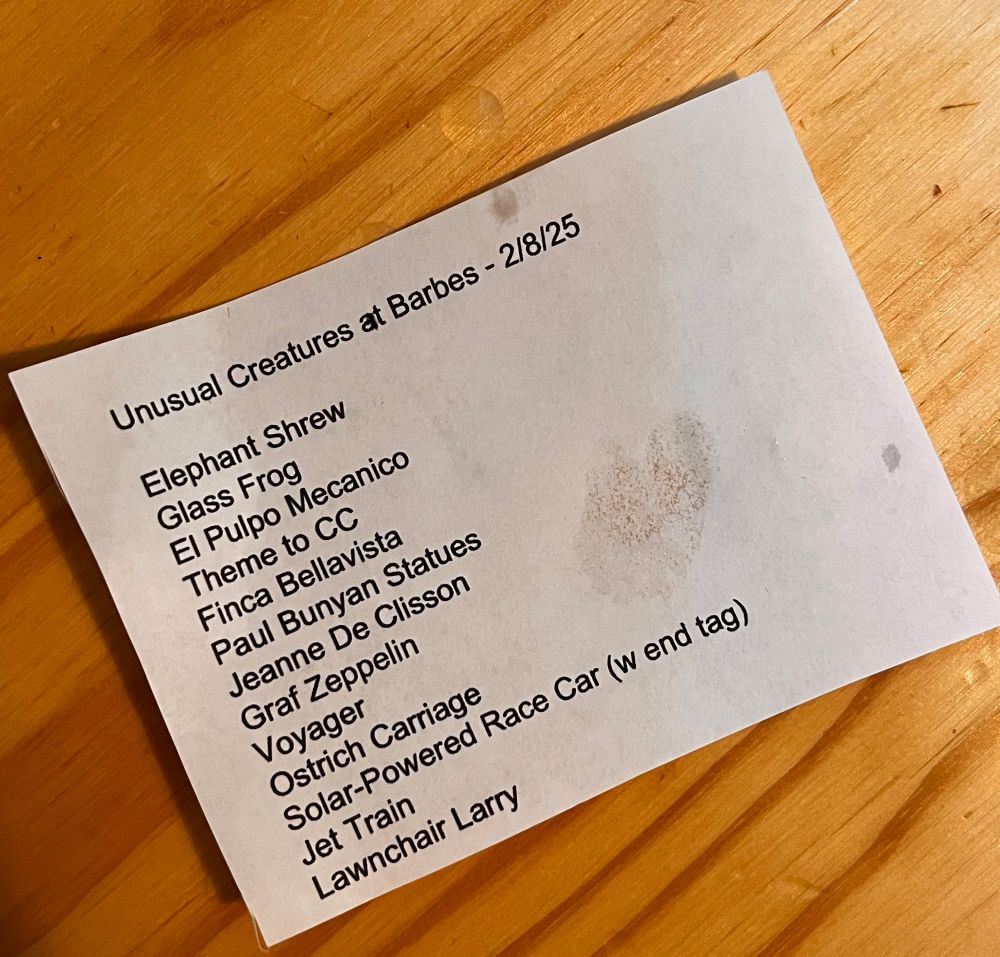 Unusual Creatures at Barbes - 2/8/25
Elephant Shrew
Glass Frog
El Pulpo Mecanico
Theme to CC
Finca Bellavista
Paul Bunyan Statues
Jeanne De Clisson
Graf Zeppelin
Voyager
Ostrich Carriage
Solar-Powered Race Car (w end tag)
Jet Train
Lawnchair Larry